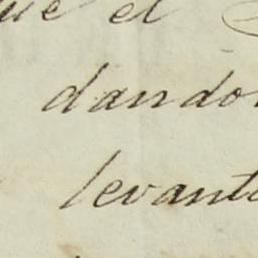 que el
dando
levant